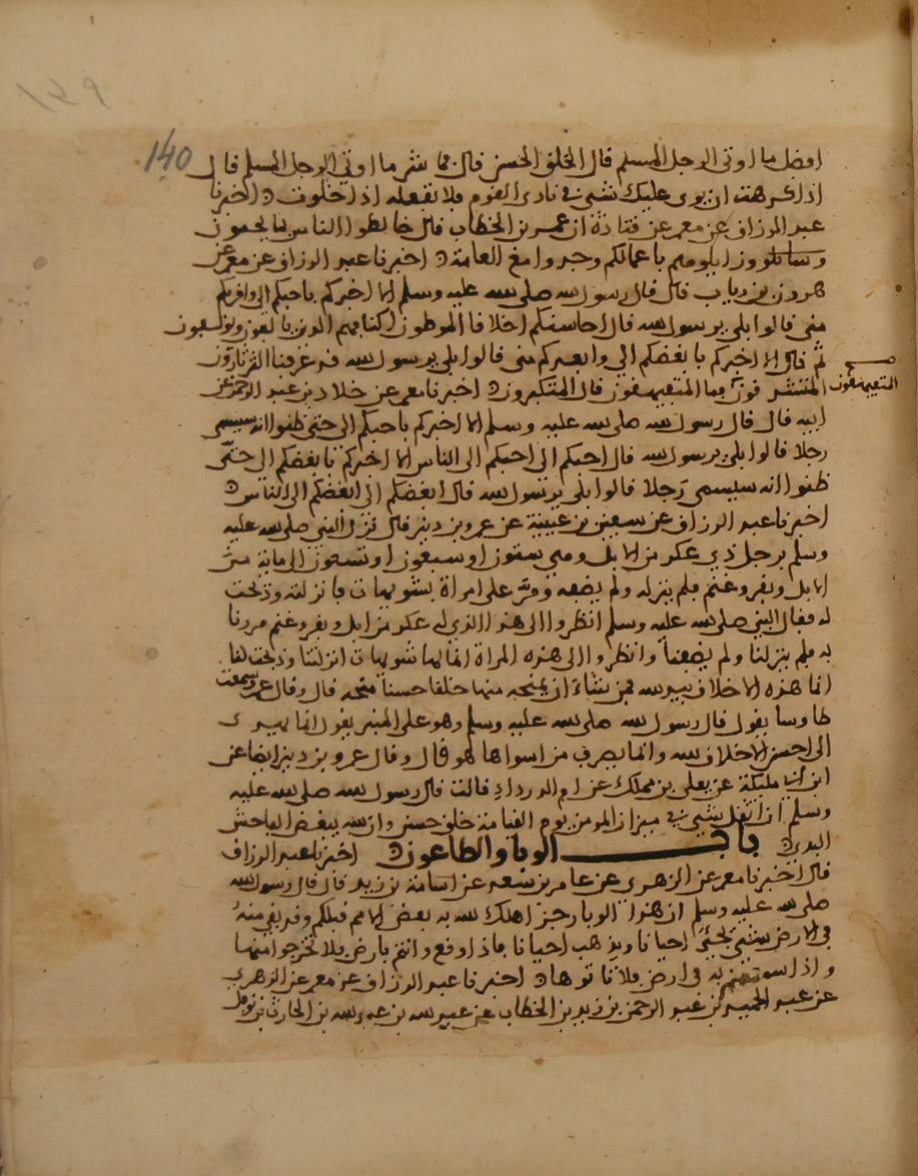 140
افضل ما اوتى الرجل المسلم قال الخلق الحسن قال فما شر ما اوتي الرجل المسلم قال
اذا كرهت ان يرى عليك شي في نادي القوم فلا تفعله اذا خلوت اخبرنا
عبد الرزاق عن معمر عن قتادة ان عمر بن الخطاب قال خالطوا الناس بما يحبون
وزايلوهم باعمالكم وجدوا مع العامة اخبرنا عبد الرزاق عن معمر عن
هرون بن رياب قال قال رسول الله صلى الله عليه وسلم الا اخبركم باحبكم الي واقربكم
مني قالوا بلى يرسول الله قال احاسنكم اخلاقا الموطون اكنافهم الذين يالفون ويولفون
ثم قال الا اخبركم بابغضكم الي وابعدكم مني قالوا بلى يرسول الله قد عرفنا الثرثارون
المتفيهقون
فما المتفيهقون قال المتكبرون اخبرنا معمر عن خلاد بن عبد الرحمن عن
ابيه قال قال رسول الله صلى الله عليه وسلم الا اخبركم باحبكم الي حتى ظنوا انه سيسمي
رجلا قالوا بلى يرسول الله قال احبكم الي احبكم الى الناس الا اخبركم بابغضكم الي حتى
ظنوا انه سيسمي رجلا قالوا بلى يرسول الله قال ابغضكم الي ابغضكم الى الناس
اخبرنا عبد الرزاق عن سفين بن عيينة عن عمرو بن دينر قال نزل النبي صلى الله عليه
وسلم برجل ذي عكر من الابل وهي ستون او سبعون او تسعون الى ماية من
الابل وبقر وغنم فلم ينزله ولم يضفه ومر على امراة بشويهات فانزلته وذبحت
له فقال النبي صلى الله عليه وسلم انظروا الى هذا الذي له عكر من ابل وبقر وغنم مررنا
به فلم ينزلنا ولم يضفنا وانظروا الى هذه المراة انما لها شويهات انزلتنا وذبحت لنا
انما هذه الاخلاق بيد الله فمن شاء ان يمنحه منها خلقا حسنا منحه قال وقال عمرو سمعت
طاوسا يقول قال رسول الله صلى الله عليه وسلم وهو على المنبر يقول انما يهدي
الى احسن الاخلاق الله وانما يصرف من اسواها هو قال وقال عمرو بن دينر ايضا عن
ابن ابي مليكة عن يعلى بن مملك عن ام الدرداء قالت قال رسول الله صلى الله عليه
وسلم ان اثقل شي في ميزان المومن يوم القيامة خلق حسن وان الله يبغض الفاحش
البذي باب الوبا والطاعون اخبرنا عبد الرزاق
قال اخبرنا معمر عن الزهري عن عامر بن سعد عن اسامة بن زيد قال قال رسول الله
صلى الله عليه وسلم ان هذا الوبا رجز اهلك الله به بعض الامم قبلكم وقد بقي منه
في الارض شي يجئ احيانا ويذهب احيانا فاذا وقع وانتم بارض فلا تخرجوا منها
واذا سمعتم به في ارض فلا تاتوها اخبرنا عبد الرزاق عن معمر عن الزهري
عن عبد الحميد بن عبد الرحمن بن زيد بن الخطاب عن عبد الله بن عبد الله بن الحارث بن نوفل